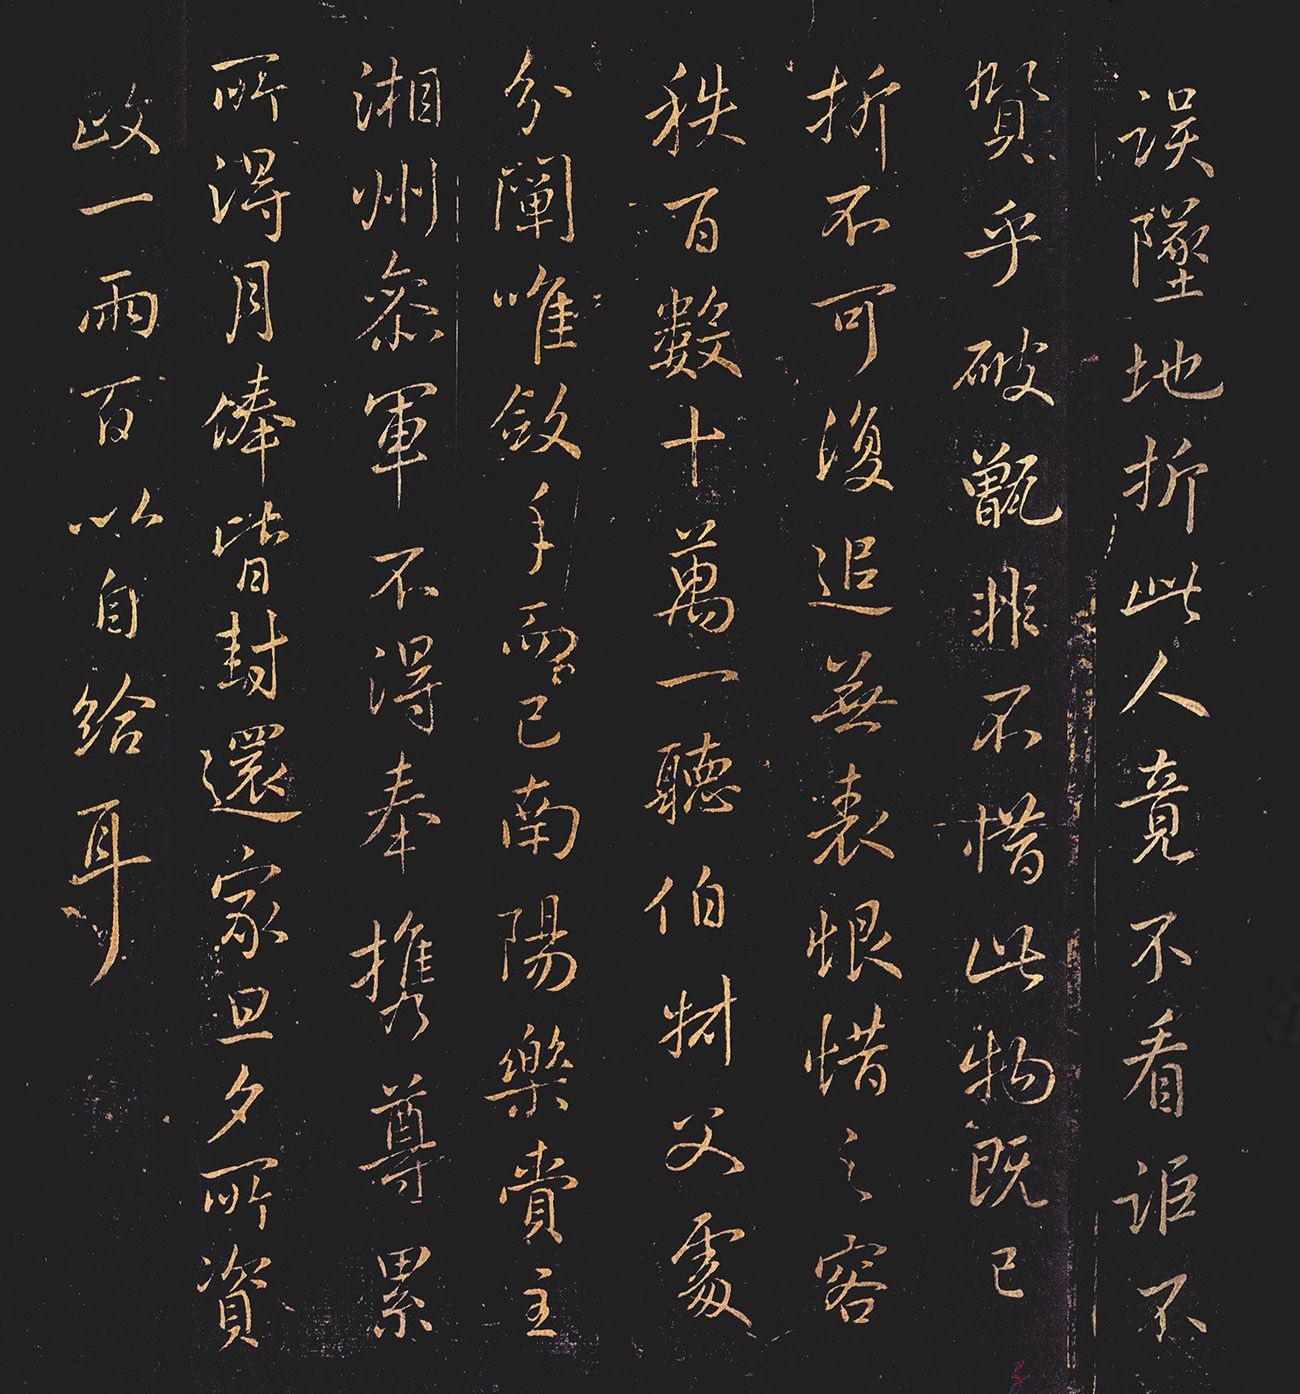 误墜地折此人竟不看詎不
賀乎破甑非不惜此物既已
折不可復追無表恨惜之容
秩百數十萬一聽伯
父處
分闡唯斂手而已南陽樂賞主
湘州參軍不得奉攜尊累
所得月俸皆封還家旦夕所資
政一兩百以自給耳